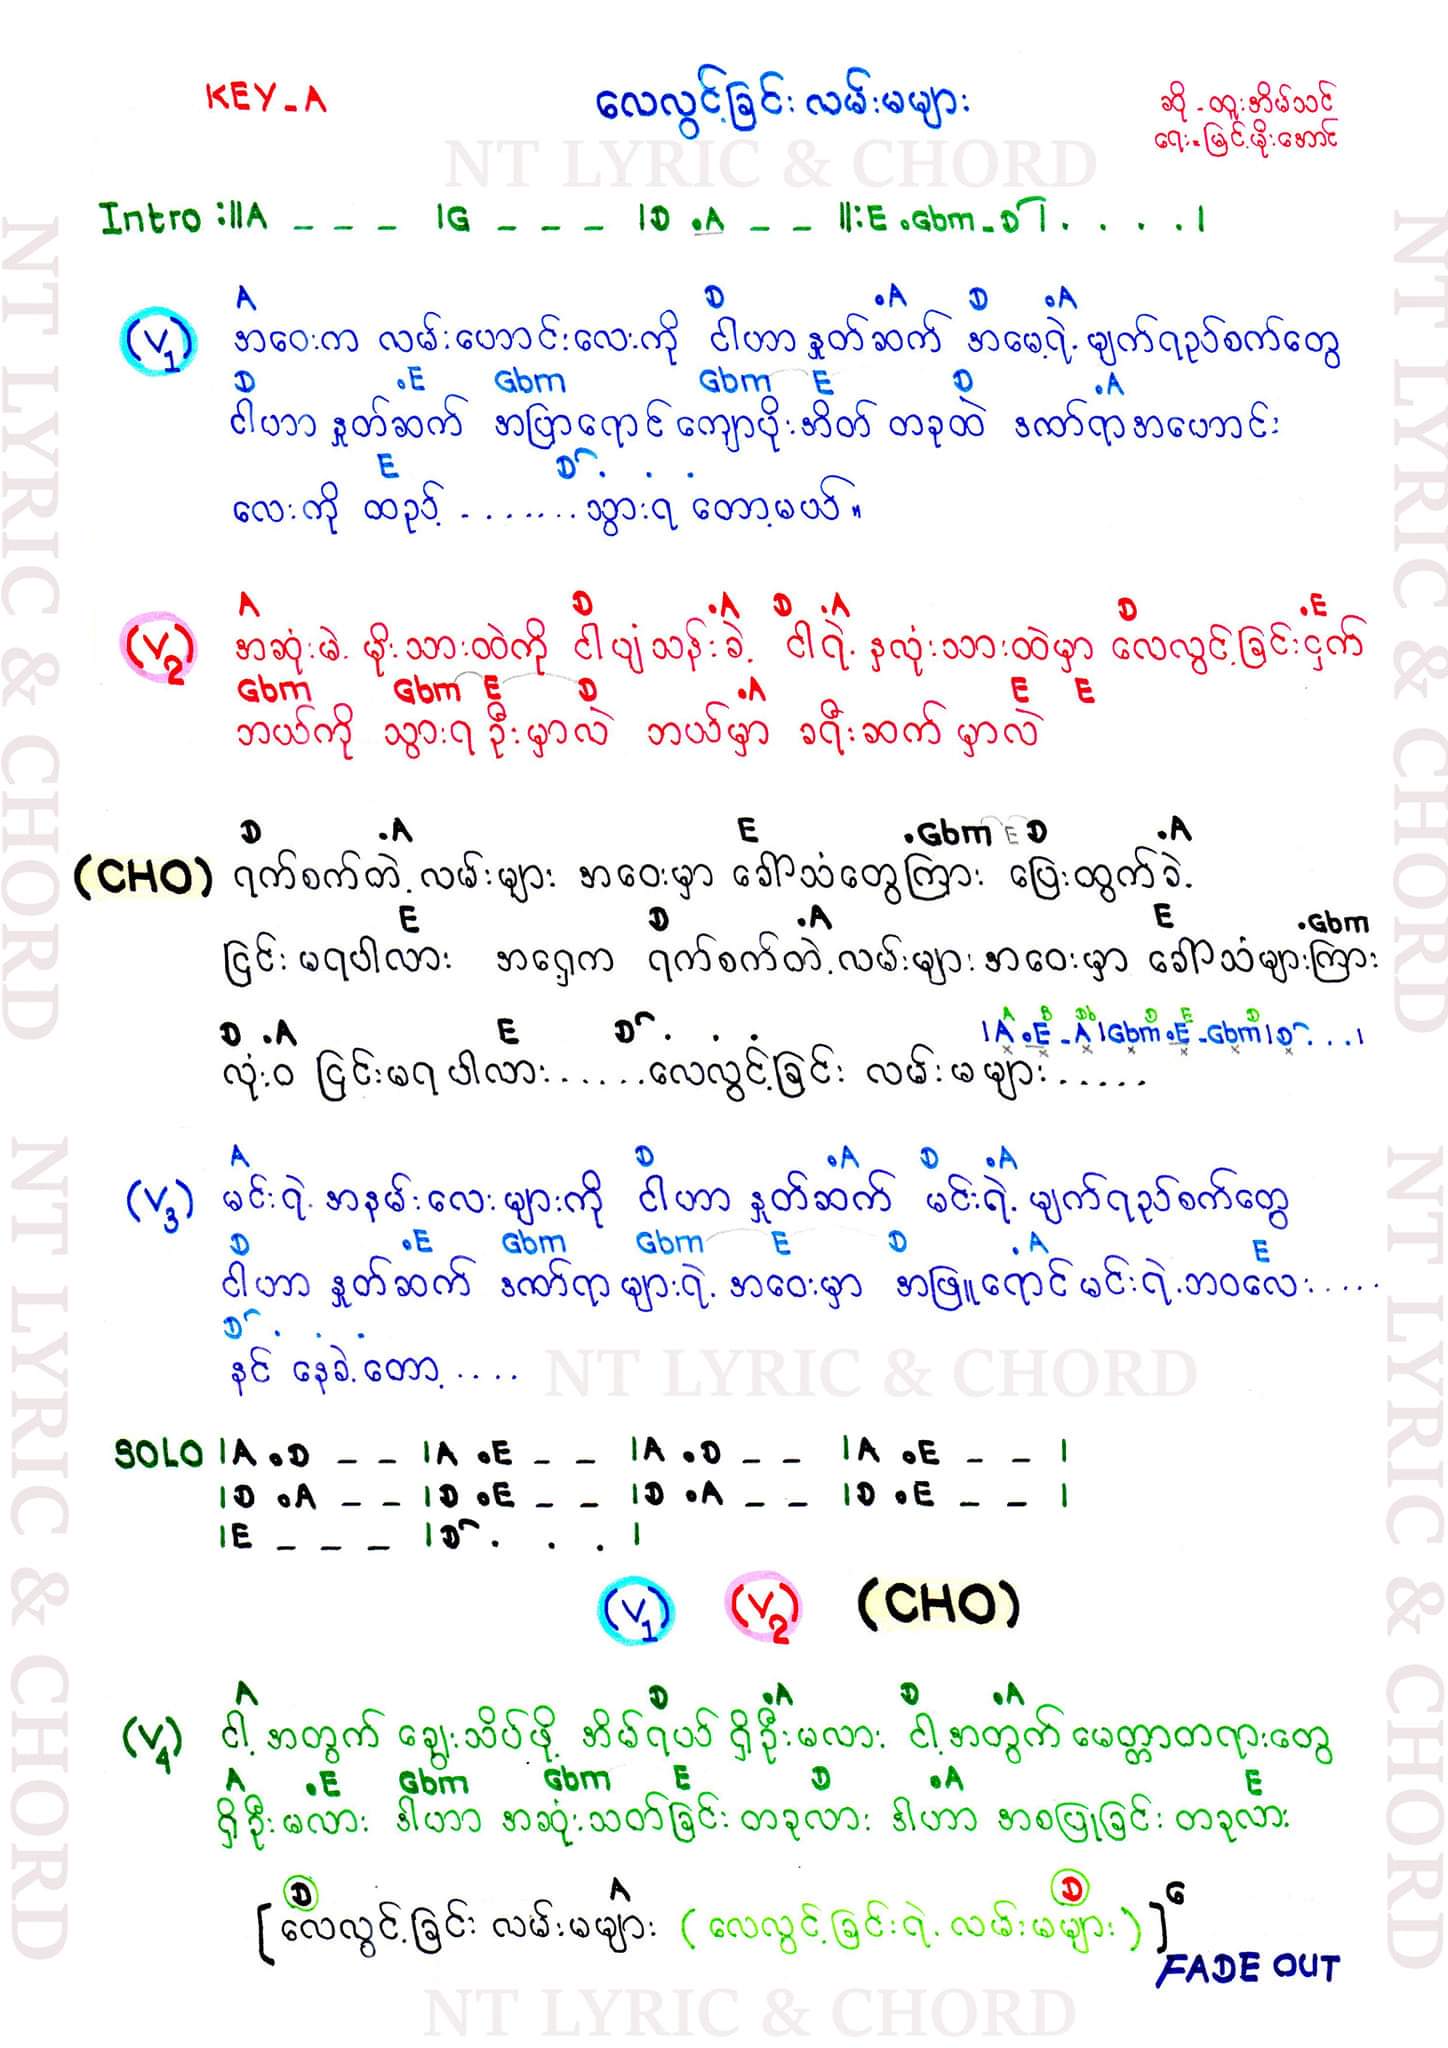 KEY_A
လေလွင့်ခြင်းလမ်းမများ
ဆို - ထူးအိမ်သင်
ရေး - မြင့်မိုးအောင်
NT LYRIC & CHORD
Intro :||A _ _ _ |G _ _ _ |D .A _ _ ||:E .Gbm_D |. . . .|
A D .A D .A
(V1) အဝေးက လမ်းဟောင်းလေးကို ငါဟာ နှုတ်ဆက် အမေ့ရဲ့ မျက်ရည်စက်တွေ
D .E Gbm Gbm E D .A
ငါဟာ နှုတ်ဆက် အပြာရောင် ကျောပိုးအိတ် တခုထဲ ဒဏ်ရာအဟောင်း
E D . . .
လေးကို ထည့် ....... သွားရ တော့မယ်။
A D .A D .A D .E
(V2) အဆုံးမဲ့ မိုးသားထဲကို ငါပျံသန်းခဲ့ ငါရဲ့ နှလုံးသားထဲမှာ လေလွင့်ခြင်းငှက်
Gbm Gbm E D .A E E
ဘယ်ကို သွားရဦးမှာလဲ ဘယ်မှာ ခရီးဆက်မှာလဲ
D .A E .Gbm E D .A
(CHO) ရက်စက်တဲ့ လမ်းများ အဝေးမှာ ခေါ်သံတွေကြား ပြေးထွက်ခဲ့
E D .A E .Gbm
ငြင်းမရပါလား အရှေ့က ရက်စက်တဲ့လမ်းများ အဝေးမှာ ခေါ်သံများကြား
A B Db D E D
D .A E D . . . |A .E _A |Gbm .E _Gbm |D . . . |
လုံးဝ ငြင်းမရပါလား......လေလွင့်ခြင်း လမ်းမများ.....
A D .A D .A
(V3) မင်းရဲ့ အနမ်းလေးများကို ငါဟာ နှုတ်ဆက် မင်းရဲ့ မျက်ရည်စက်တွေ
D .E Gbm Gbm E D .A E
ငါဟာ နှုတ်ဆက် ဒဏ်ရာများရဲ့ အဝေးမှာ အဖြူရောင် မင်းရဲ့ဘဝလေး.....
D . . .
နင် နေခဲ့တော့....
NT LYRIC & CHORD
SOLO |A .D _ _ |A .E _ _ |A .D _ _ |A .E _ _ |
|D .A _ _ |D .E _ _ |D .A _ _ |D .E _ _ |
|E _ _ _ |D . . . |
(V1) (V2) (CHO)
A D .A D .A
(V4) ငါ့အတွက် ချွေးသိပ်ဖို့ အိမ်ရိပ် ရှိဦးမလား ငါ့အတွက် မေတ္တာတရားတွေ
A .E Gbm Gbm E D .A E
ရှိဦးမလား ဒါဟာ အဆုံးသတ်ခြင်း တခုလား ဒါဟာ အစပြုခြင်း တခုလား
D A D
[လေလွင့်ခြင်း လမ်းမများ (လေလွင့်ခြင်းရဲ့ လမ်းမများ)]6
FADE OUT
NT LYRIC & CHORD
NT LYRIC & CHORD
NT LYRIC & CHORD
NT LYRIC & CHORD
NT LYRIC & CHORD